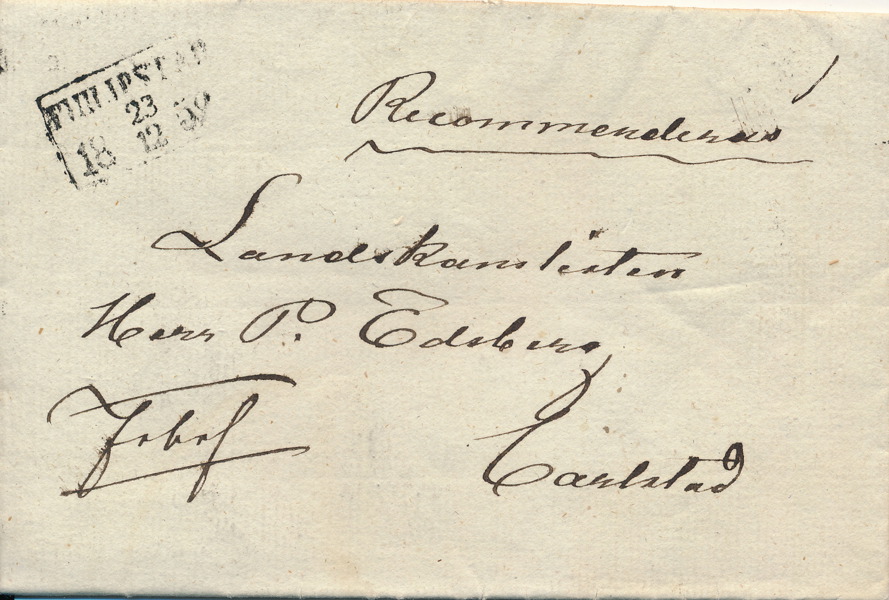 PHILIPSTAD
23
18 12 50
Recommenderas
Landskanslisten
Herr P. Edsberg
Carlstad